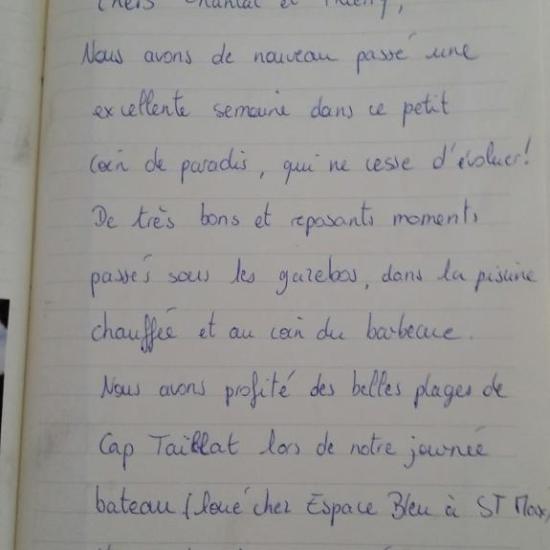 Chers Chantal et Thierry,
Nous avons de nouveau passé une
excellente semaine dans ce petit
coin de paradis, qui ne cesse d'évoluer!
De très bons et reposants moments
passés sous les gazebos, dans la piscine
chauffée et au coin du barbecue.
Nous avons profité des belles plages de
Cap Taillat lors de notre journée
bateau (loué chez Espace Bleu à ST Max,